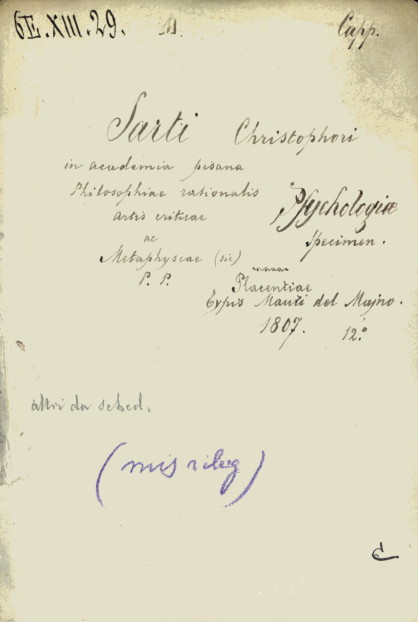 6E.XIII.29. Capp.
Sarti Christophori
in academia pisana
Philosophiae rationalis
artis criticae
ac
Metaphyseae (sic)
P. P.
Psychologiæ
specimen.
Placentiae
Typis Mauri del Majno.
1807. 12.º
altri da sched.
(mis rileg)